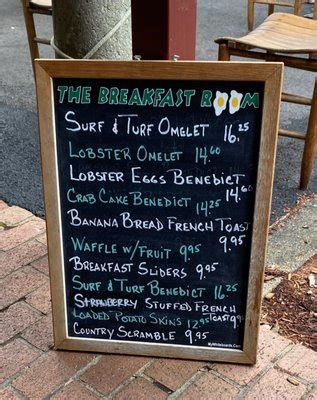 THE BREAKFAST ROOM
SURF & TURF OMELET 16.25
LOBSTER OMELET 14.60
LOBSTER EGGS BENEDICT 14.60
CRAB CAKE BENEDICT 14.25
BANANA BREAD FRENCH TOAST 9.95
WAFFLE W/FRUIT 9.95
BREAKFAST SLIDERS 9.95
SURF & TURF BENEDICT 16.25
STRAWBERRY STUFFED FRENCH TOAST 9.95
LOADED POTATO SKINS 12.95
COUNTRY SCRAMBLE 9.95
MyWhiteboards.com